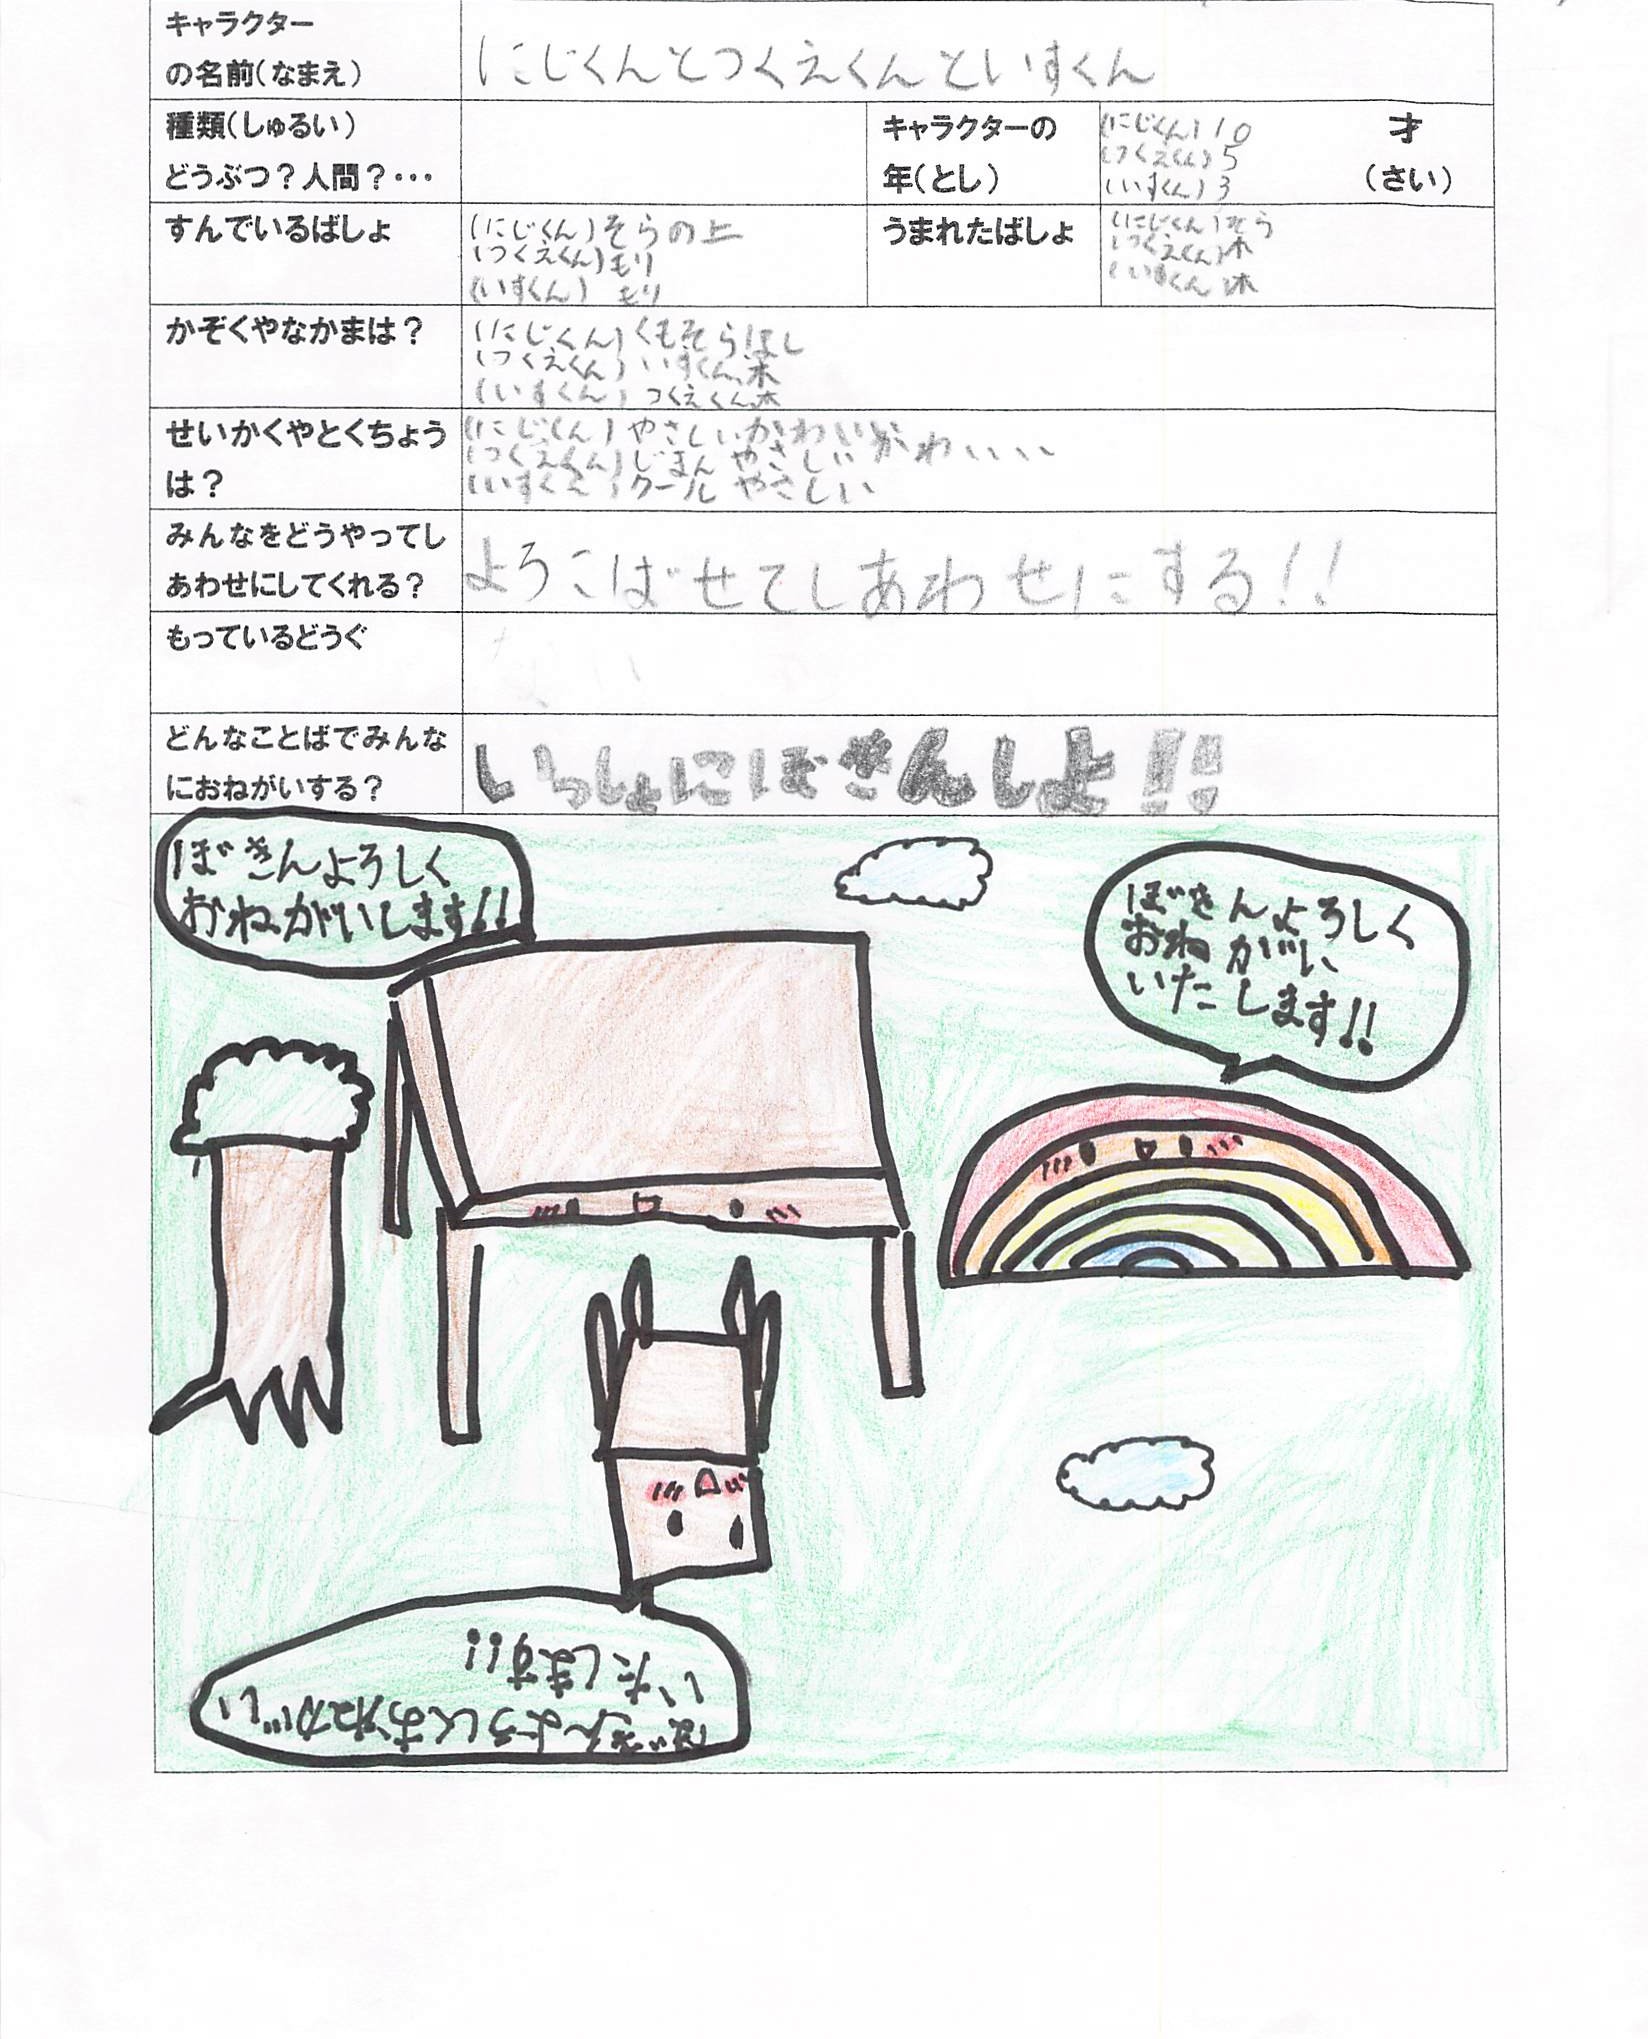 キャラクター
の名前(なまえ)
にじくんとつくえくんといすくん
種類(しゅるい)
どうぶつ?人間?・・・
キャラクターの
年(とし)
(にじくん)10
(つくえくん)5
(いすくん)3
才
(さい)
すんでいるばしょ
(にじくん)そらの上
(つくえくん)もり
(いすくん)もり
うまれたばしょ
(にじくん)そら
(つくえくん)木
(いすくん)木
かぞくやなかまは?
(にじくん)くもそらほし
(つくえくん)いすくん、木
(いすくん)つくえくん、木
せいかくやとくちょう
は?
(にじくん)やさしいかわいい
(つくえくん)じまん やさしい かわいい
(いすくん)クール やさしい
みんなをどうやってし
あわせにしてくれる?
よろこばせてしあわせにする!!
もっているどうぐ
どんなことばでみんな
におねがいする?
いっしょにぼきんしよ!!
ぼきんよろしく
おねがいします!!
ぼきんよろしく
おねがい
いたします!!
ぼきんよろしくおねがい
いたします!!